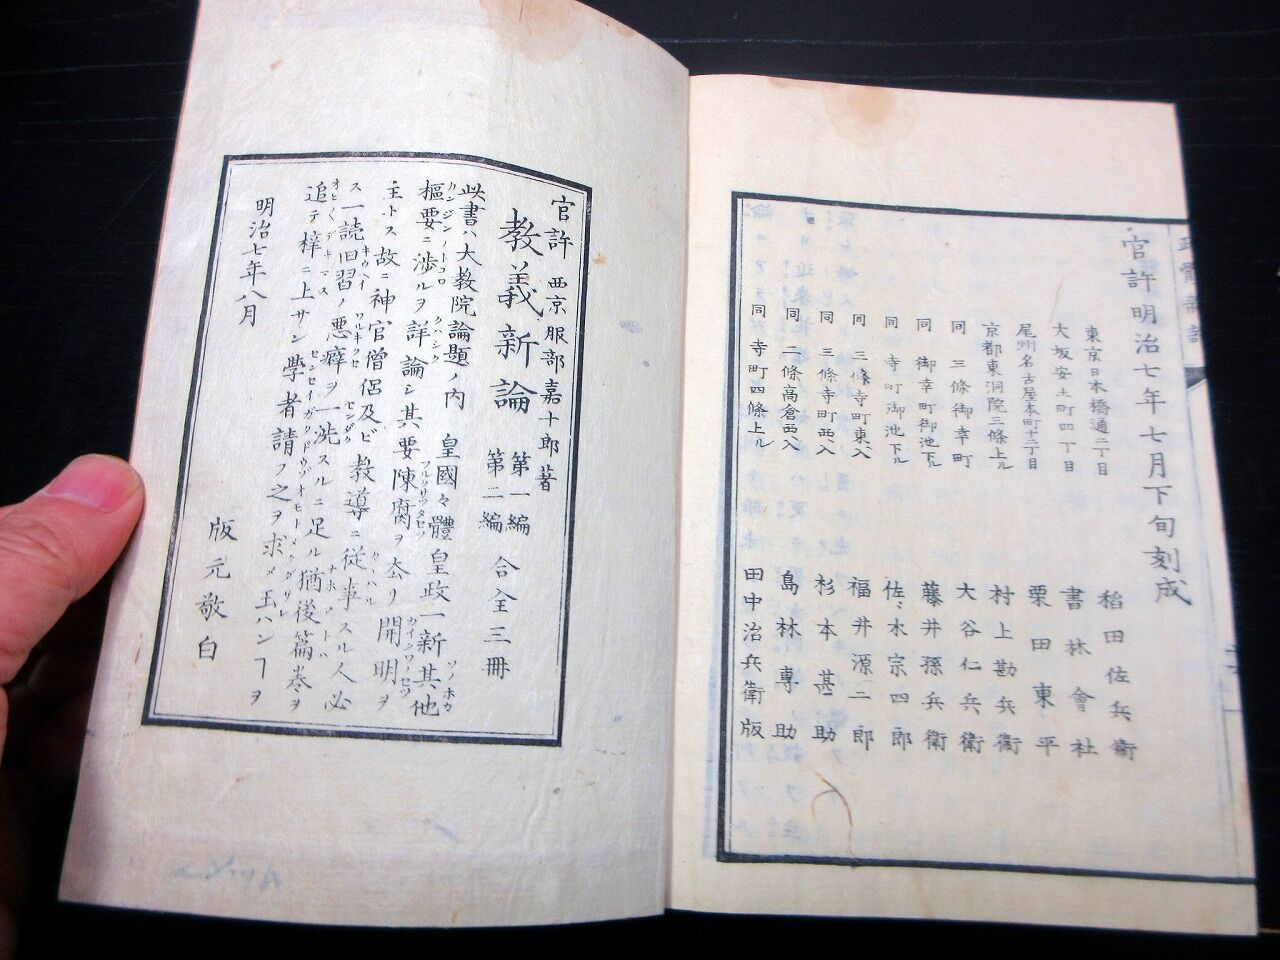 官許明治七年七月下旬刻成
東京日本橋通二丁目 稲田佐兵衛
大坂安土町四丁目 書林會社
尾州名古屋本町十二丁目 栗田東平
京都東洞院三條上ル 村上勘兵衛
同 三條御幸町 大谷仁兵衛
同 御幸町御池下ル 藤井孫兵衛
同 寺町御池下ル 佐々木宗四郎
同 三條寺町東入 福井源二郎
同 三條寺町西入 杉本甚助
同 二條高倉西入 島林專助
同 寺町四條上ル 田中治兵衛版
官許 西京服部嘉十郎著
教義新論 第一編 第二編 合全三冊
此書ハ大教院論題ノ内 皇國々體皇政一新其他
樞要ニ渉ルヲ詳論シ其要陳腐ヲ去リ開明ヲ
主トス故ニ神官僧侶及ビ教導ニ従事スル人必
ス一読旧習ノ悪癖ヲ一洗スルニ足ル猶後篇巻ヲ
追テ梓ニ上サン學者請フ之ヲ求メ玉ハンヿヲ
明治七年八月
版元敬白